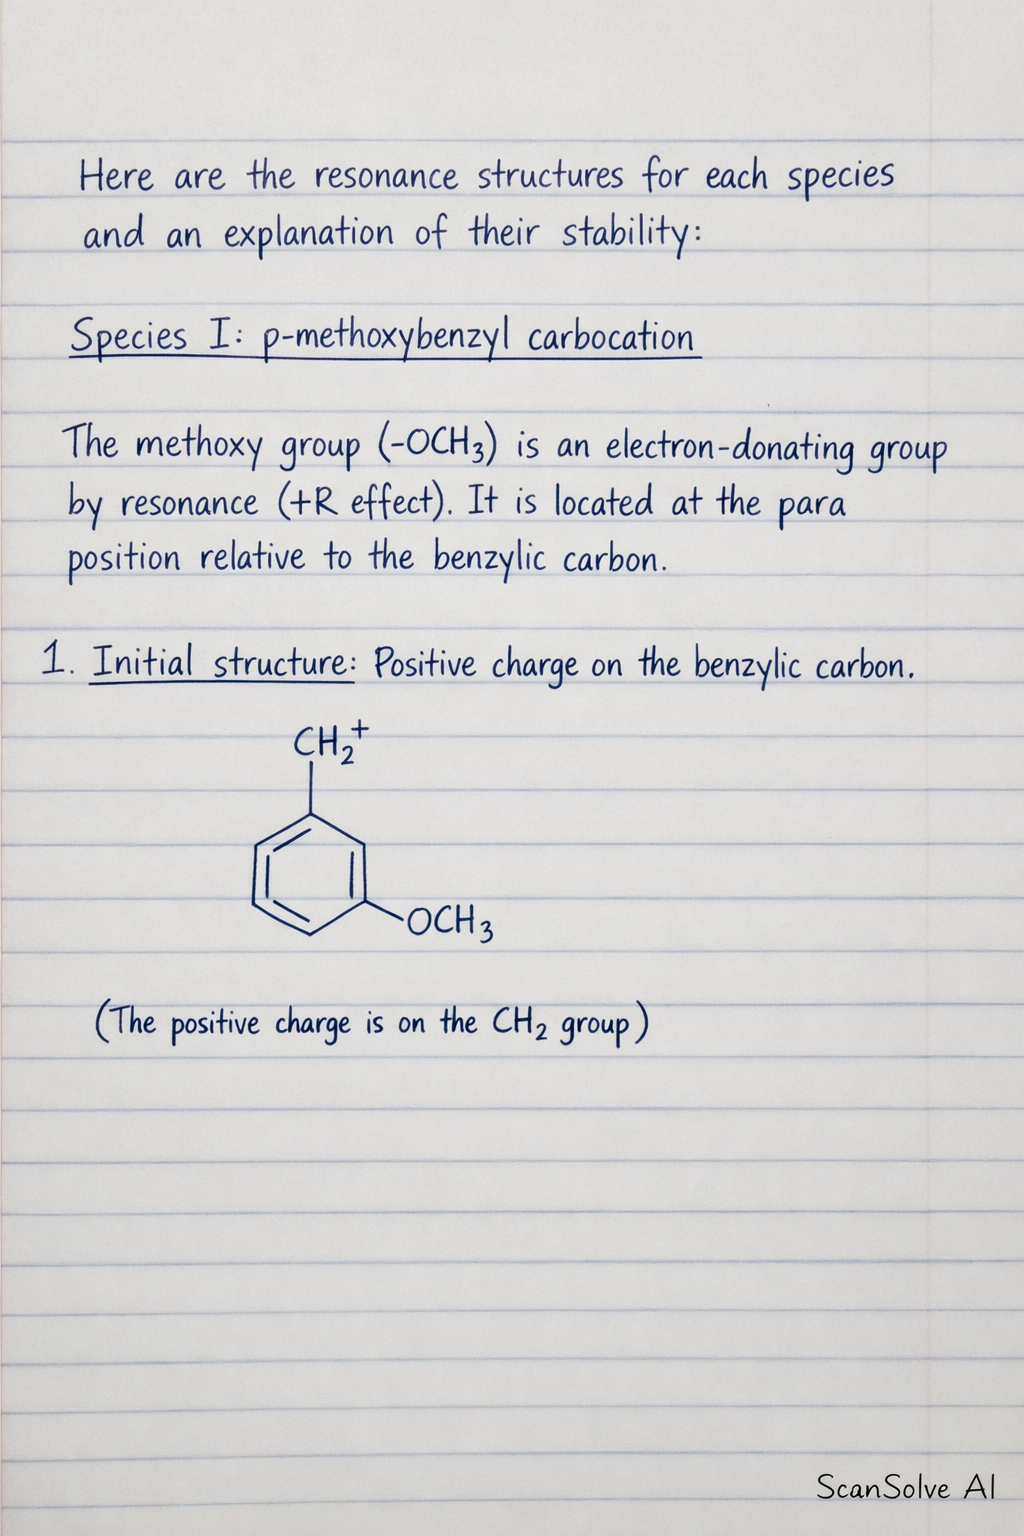 Here are the resonance structures for each species
and an explanation of their stability:
Species I: p-methoxybenzyl carbocation
The methoxy group (-OCH₃) is an electron-donating group
by resonance (+R effect). It is located at the para
position relative to the benzylic carbon.
1. Initial structure: Positive charge on the benzylic carbon.
CH₂⁺
OCH₃
(The positive charge is on the CH₂ group)
ScanSolve AI